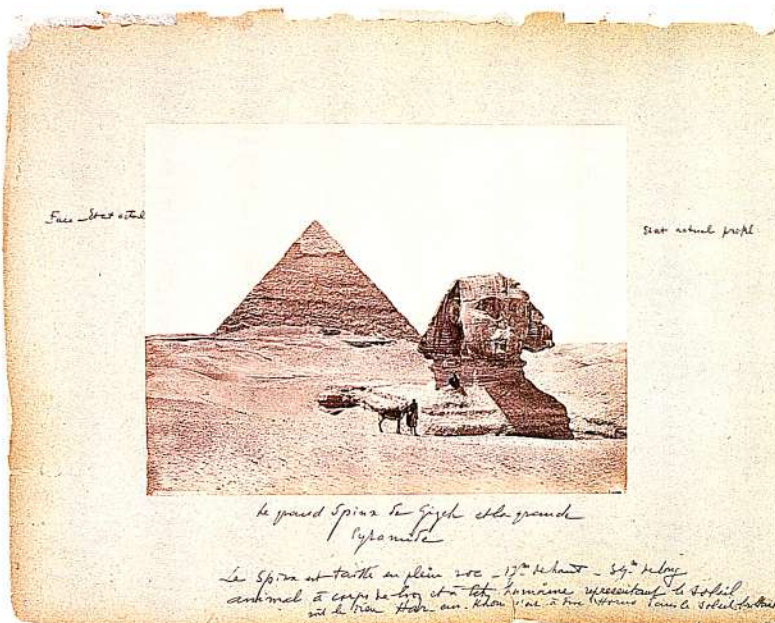 Face - Etat actuel
Etat actuel profil
Le grand Spinx de Gizeh et la grande
Pyramide
Le Spinx est taillé en plein roc - 17m de haut - 39m de long
animal à corps de lion et à tête humaine representant le soleil
soit le Dieu Hor c'est à dire Horus dans le soleil